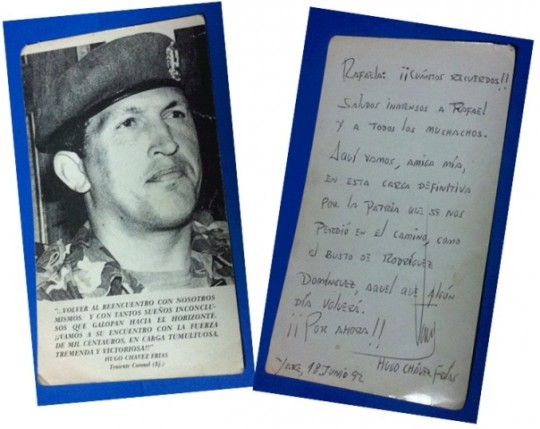 "..VOLVER AL REENCUENTRO CON NOSOTROS
MISMOS Y CON TANTOS SUEÑOS INCONCLU-
SOS QUE GALOPAN HACIA EL HORIZONTE.
¡¡VAMOS A SU ENCUENTRO CON LA FUERZA
DE MIL CENTAUROS, EN CARGA TUMULTUOSA,
TREMENDA Y VICTORIOSA!!"
HUGO CHAVEZ FRIAS
Teniente Coronel (Ej.)
RAFAELA: ¡¡CUÁNTOS RECUERDOS!!
SALUDOS INMENSOS A RAFAEL
Y A TODOS LOS MUCHACHOS.
AQUÍ VAMOS, AMIGA MÍA,
EN ESTA CARGA DEFINITIVA
POR LA PATRIA QUE SE NOS
PERDIÓ EN EL CAMINO, COMO
EL BUSTO DE RODRÍGUEZ
DOMÍNGUEZ, AQUEL QUE ALGÚN
DÍA VOLVERÁ.
¡¡POR AHORA!!
HUGO CHÁVEZ FRÍAS
YARE, 18 JUNIO 92